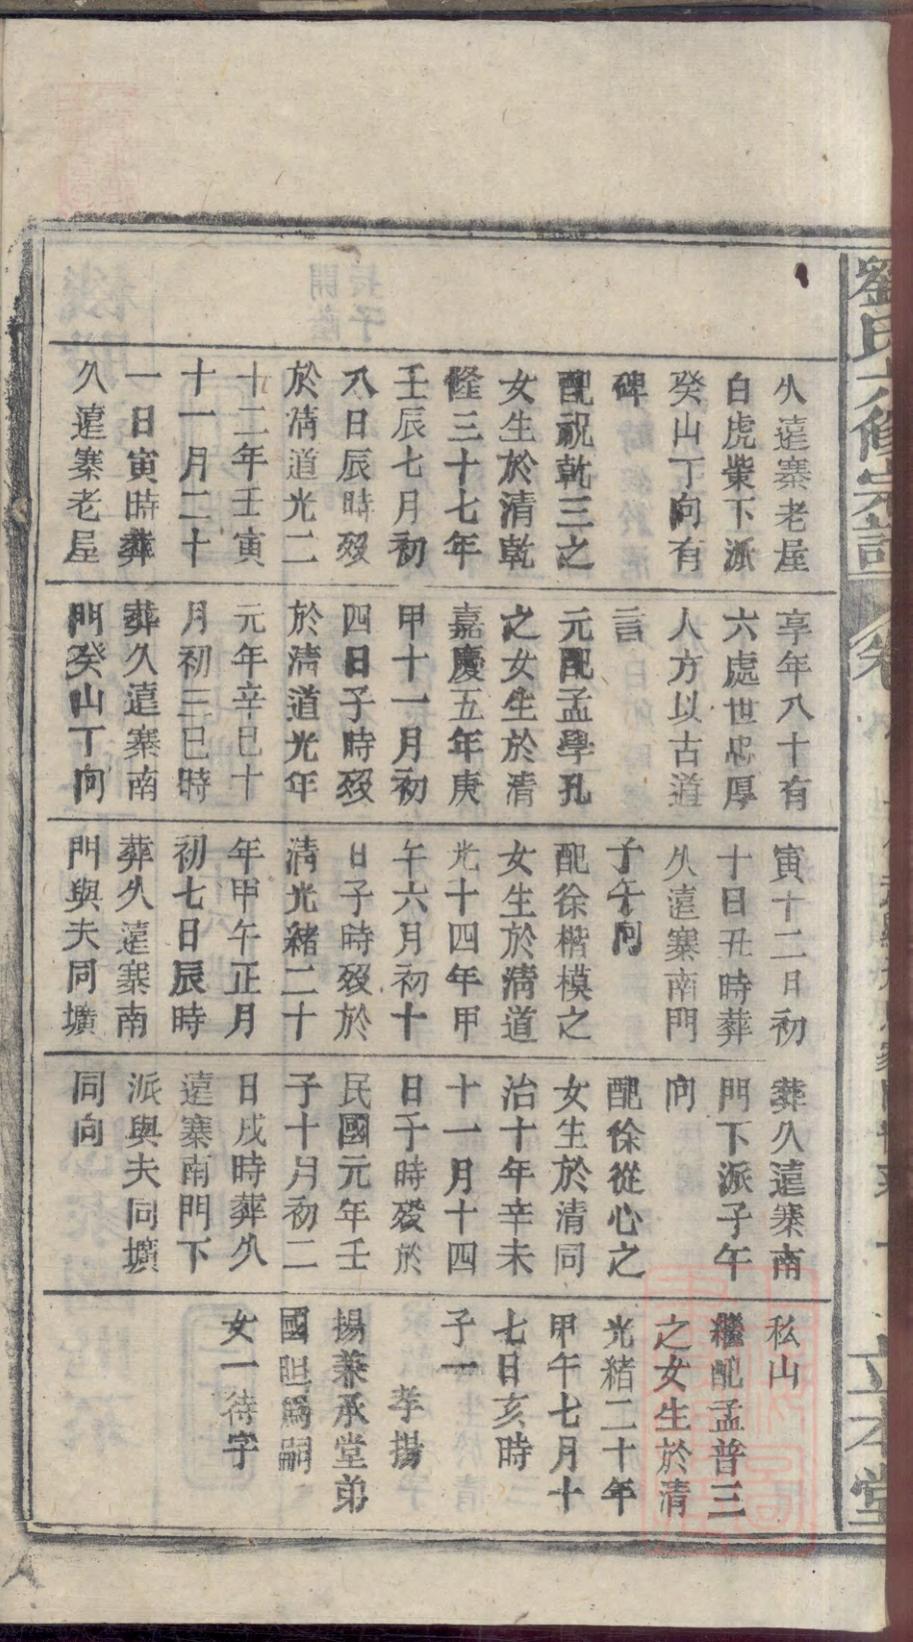 久遠寨老屋
白虎業下派
癸山丁向有
碑
配祝乾三之
女生於清乾
隆三十七年
壬辰七月初
八日辰時歿
於清道光二
十二年壬寅
十一月二十
一日寅時葬
久遠寨老屋
享年八十有
六處世忠厚
人方以古道
言
元配孟學孔
之女生於清
嘉慶五年庚
甲十一月初
四日子時歿
於清道光年
元年辛巳十
月初三巳時
葬久遠寨南
門癸山丁向
寅十二月初
十日丑時葬
久遠寨南門
子午向
配徐楷模之
女生於清道
光十四年甲
午六月初十
日子時歿於
清光緒二十
年甲午正月
初七日辰時
葬久遠寨南
門與夫同壙
葬久遠寨南
門下派子午
向
配徐從心之
女生於清同
治十年辛未
十一月十四
日子時歿於
民國元年壬
子十月初二
日戌時葬久
遠寨南門下
派與夫同壙
同向
私山
繼配孟普三
之女生於清
光緒二十年
甲午七月十
七日亥時
子一
孝揚
揚兼承堂弟
國昛爲嗣
女一待字
劉氏六修宗譜
卷
立本堂